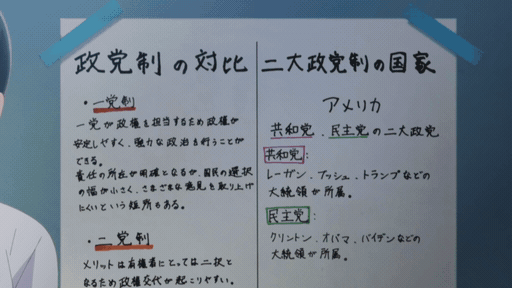 政党制の対比
・一党制
一党が政権を担当するため政権が
安定しやすく、強力な政治を行うことが
できる。
責任の所在が明確となるが、国民の選択
の幅が小さく、さまざまな意見を取り上げ
にくいという短所もある。
・二党制
メリットは有権者にとっては二択と
なるため政権交代が起こりやすい。
二大政党制の国家
アメリカ
共和党、民主党の二大政党
共和党:
レーガン、ブッシュ、トランプなどの
大統領が所属。
民主党:
クリントン、オバマ、バイデンなどの
大統領が所属。